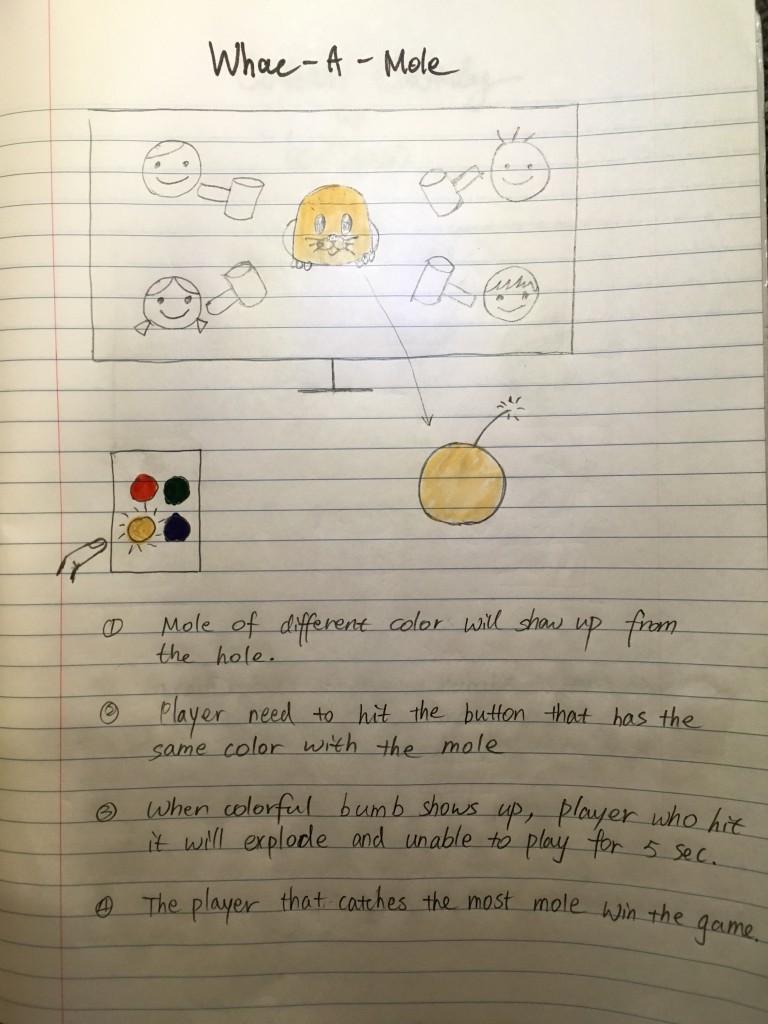 Whac-A-Mole
① Mole of different color will show up from
the hole.
② Player need to hit the button that has the
same color with the mole
③ When colorful bumb shows up, player who hit
it will explode and unable to play for 5 sec.
④ The player that catches the most mole win the game.